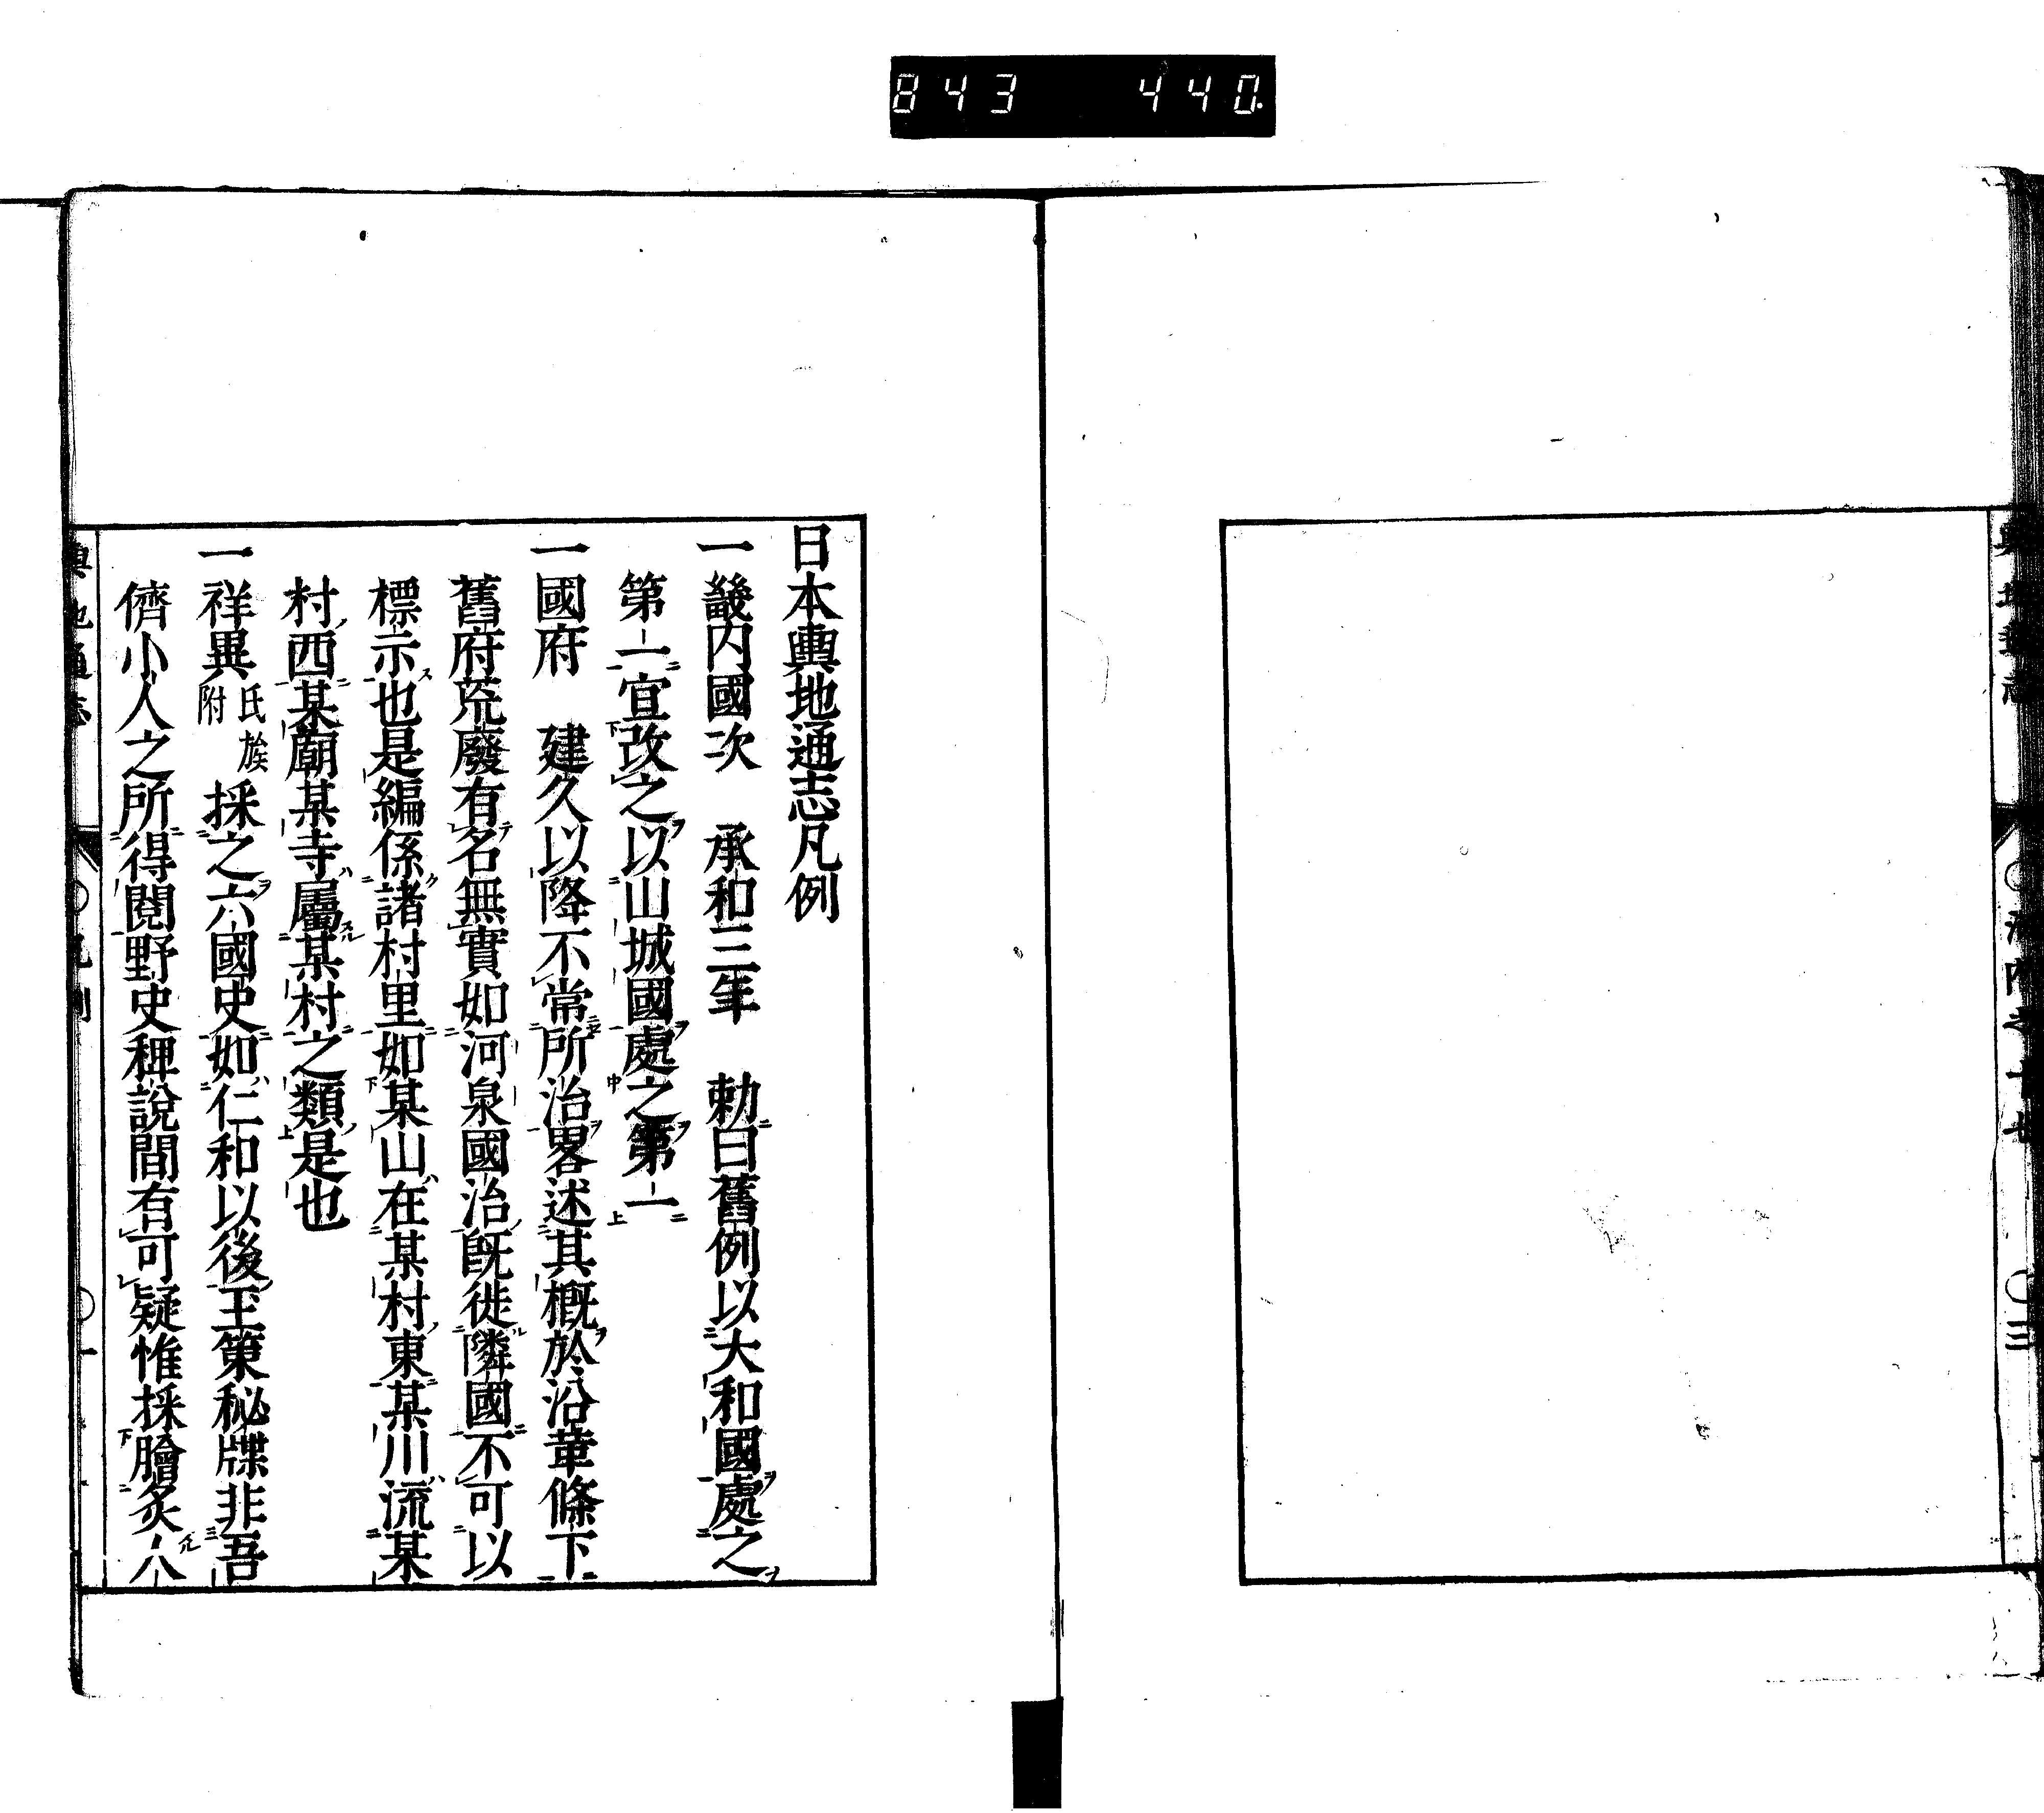 843 440.
日本輿地通志凡例
一畿內國次 承和三年 勅曰舊例以大和國處之
第一宣改之以山城國處之第一
一國府 建久以降不常所治畧述其概於沿革條下
舊府荒廢有名無實如河泉國治旣徙隣國不可以
標示也是編係諸村里如某山在某村東某川流某
村西某廟某寺屬某村之類是也
一祥異 氏族附 採之六國史如仁和以後玉策秘牒非吾
儕小人之所得閱野史稗說間有可疑惟採膾炙人
輿地通志 凡例 一